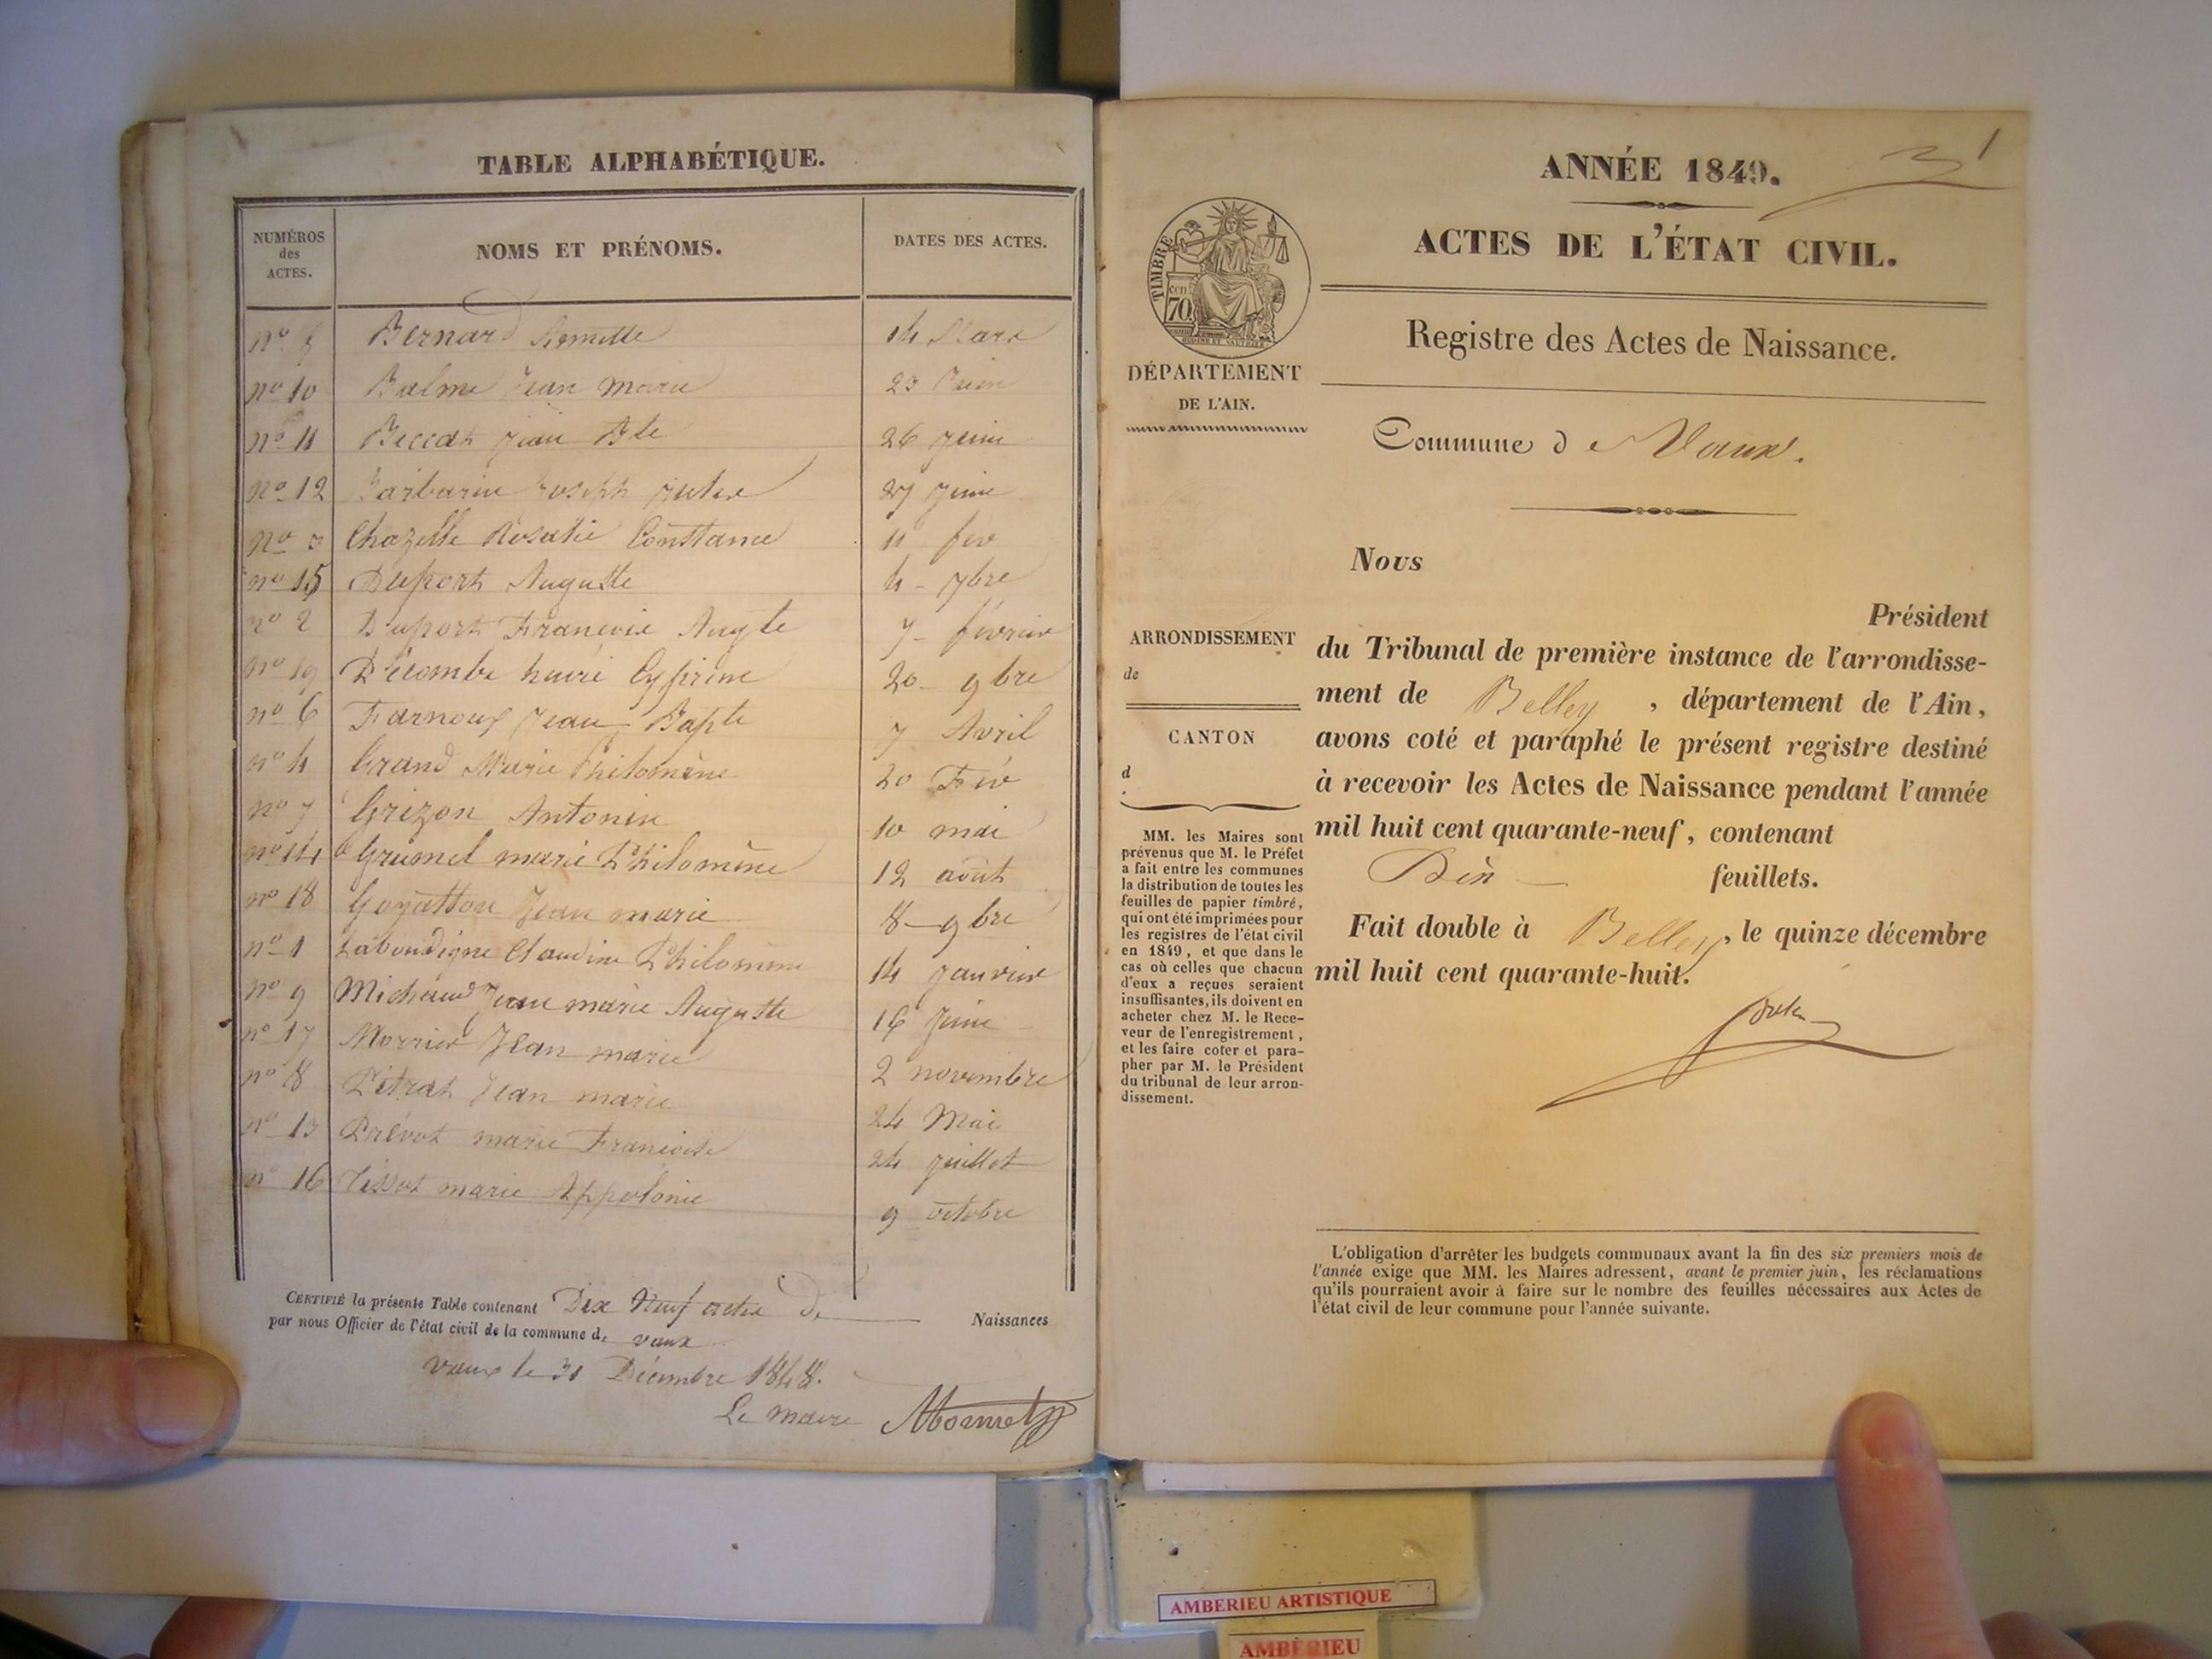 TABLE ALPHABÉTIQUE.
NUMÉROS des ACTES. NOMS ET PRÉNOMS. DATES DES ACTES.
no 5 Bernard 14 Mars
no 10 Balme Jean Marie 23 Juin
no 11 Beccat Jean Bte 26 Juin
no 12 Barbarin Joseph 27 Juin
no 3 Chazelle Rosalie Constance 11 fev
no 15 Duport Auguste 4 - 7bre
no 2 Duport Francoise Augte 7 - février
no 19 Décombe henri Cyprien 20 - 9bre
no 6 Farnoux Jean Bapte 7 Avril
no 4 Grand Marie Philomène 20 Fév
no 7 Grizon Antonin 10 mai
no 14 Grumel marie Philomène 12 août
no 18 Goyatton Jean marie 8 - 9bre
no 1 Laboudigne Claudine Philomène 14 Janvier
no 9 Michaud Jean marie Auguste 16 Juin
no 17 Morrier Jean marie 2 novembre
no 8 Pétrat Jean marie 24 Mai
no 13 Prévot marie Francoise 24 Juillet
no 16 Tissot marie Appolonie 9 octobre
CERTIFIÉ la présente Table contenant Dix Neuf actes de Naissances
par nous Officier de l'état civil de la commune de vaux
vaux le 31 Décembre 1848.
Le maire Monnet
1
ANNÉE 1849.
ACTES DE L'ÉTAT CIVIL.
TIMBRE
70 cen
Registre des Actes de Naissance.
DÉPARTEMENT
DE L'AIN.
Commune de Vaux.
Nous
Président
ARRONDISSEMENT
de
CANTON
d
du Tribunal de première instance de l'arrondisse-
ment de Belley, département de l'Ain,
avons coté et paraphé le présent registre destiné
à recevoir les Actes de Naissance pendant l'année
mil huit cent quarante-neuf, contenant
Dix feuillets.
Fait double à Belley, le quinze décembre
mil huit cent quarante-huit.
MM. les Maires sont
prévenus que M. le Préfet
a fait entre les communes
la distribution de toutes les
feuilles de papier timbré,
qui ont été imprimées pour
les registres de l'état civil
en 1849, et que dans le
cas où celles que chacun
d'eux a reçues seraient
insuffisantes, ils doivent en
acheter chez M. le Rece-
veur de l'enregistrement,
et les faire coter et para-
pher par M. le Président
du tribunal de leur arron-
dissement.
L'obligation d'arrêter les budgets communaux avant la fin des six premiers mois de
l'année exige que MM. les Maires adressent, avant le premier juin, les réclamations
qu'ils pourraient avoir à faire sur le nombre des feuilles nécessaires aux Actes de
l'état civil de leur commune pour l'année suivante.
AMBERIEU ARTISTIQUE
AMBÉRIEU